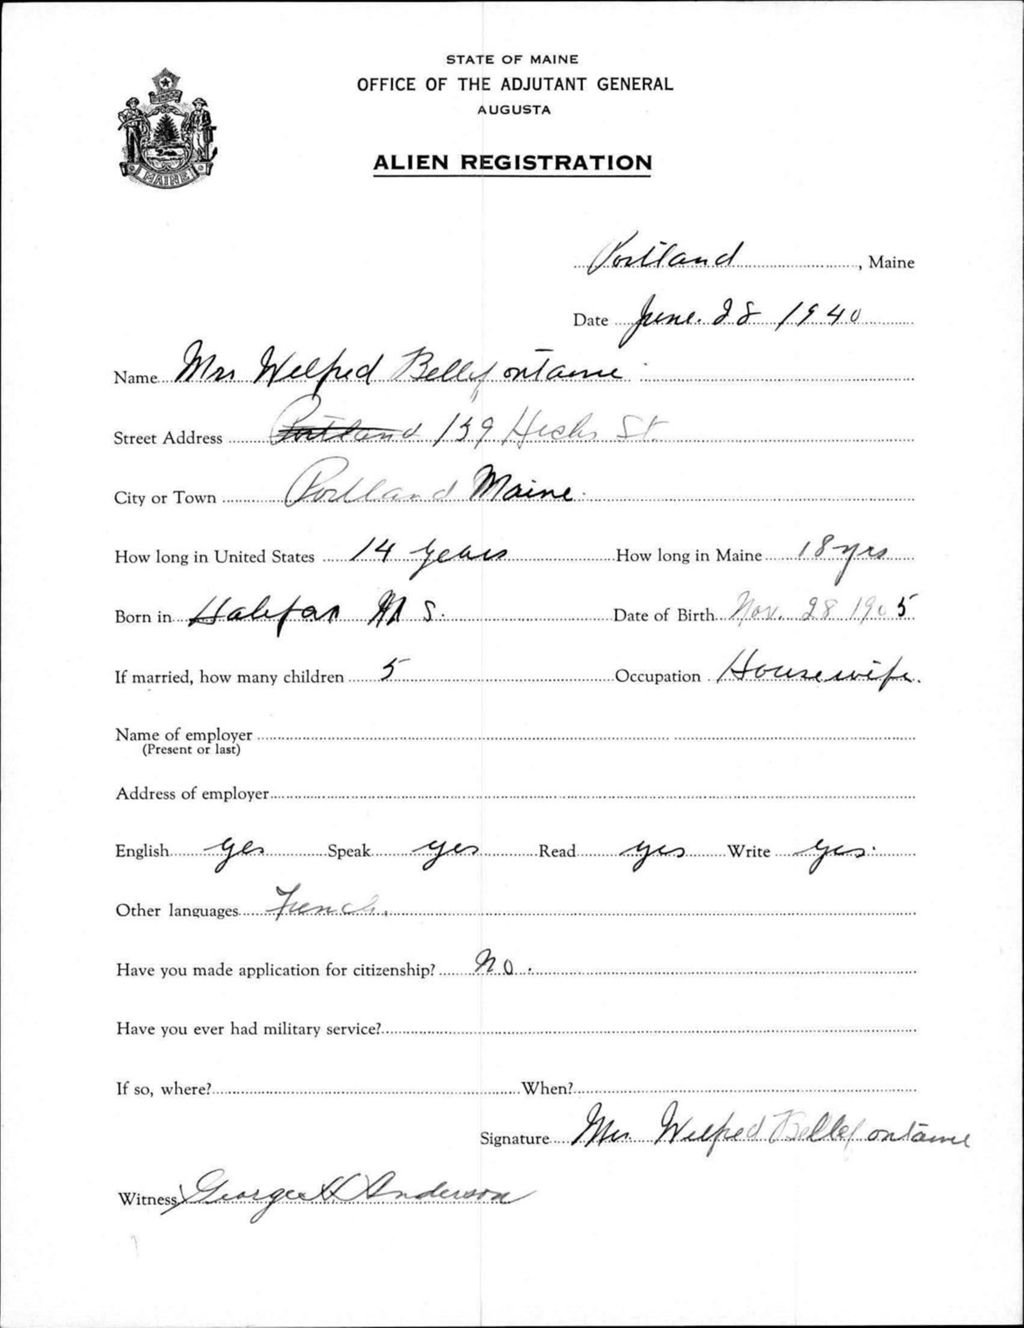 STATE OF MAINE
OFFICE OF THE ADJUTANT GENERAL
AUGUSTA
ALIEN REGISTRATION
MAINE
Portland, Maine
Date June. 28 1940
Name Mrs Wilfred Bellefontaine
Street Address Portland 139 Hicks St.
City or Town Portland Maine.
How long in United States 14 years How long in Maine 18 yrs
Born in Halifax N S. Date of Birth Nov. 28 1905
If married, how many children 5 Occupation Housewife.
Name of employer
(Present or last)
Address of employer
English yes Speak yes Read yes Write yes.
Other languages French.
Have you made application for citizenship? No.
Have you ever had military service?
If so, where? When?
Signature Mrs Wilfred Bellefontaine
Witness George H Anderson